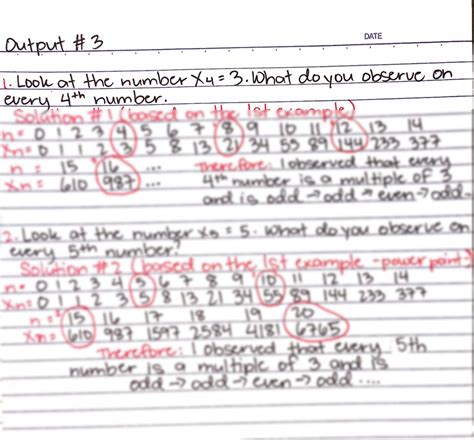 DATE
Output #3
1. Look at the number X4 = 3. What do you observe on
every 4th number.
Solution #1 (based on the 1st example)
n = 0 1 2 3 4 5 6 7 8 9 10 11 12 13 14
Xn = 0 1 1 2 3 5 8 13 21 34 55 89 144 233 377
n = 15 16 ... Therefore: I observed that every
Xn = 610 987 ... 4th number is a multiple of 3
and is odd → odd → even → odd
2. Look at the number X5 = 5. What do you observe on
every 5th number?
Solution #2 (based on the 1st example - power point)
n = 0 1 2 3 4 5 6 7 8 9 10 11 12 13 14
Xn = 0 1 1 2 3 5 8 13 21 34 55 89 144 233 377
n = 15 16 17 18 19 20
Xn = 610 987 1597 2584 4181 6765
Therefore: I observed that every 5th
number is a multiple of 3 and is
odd → odd → even → odd ....